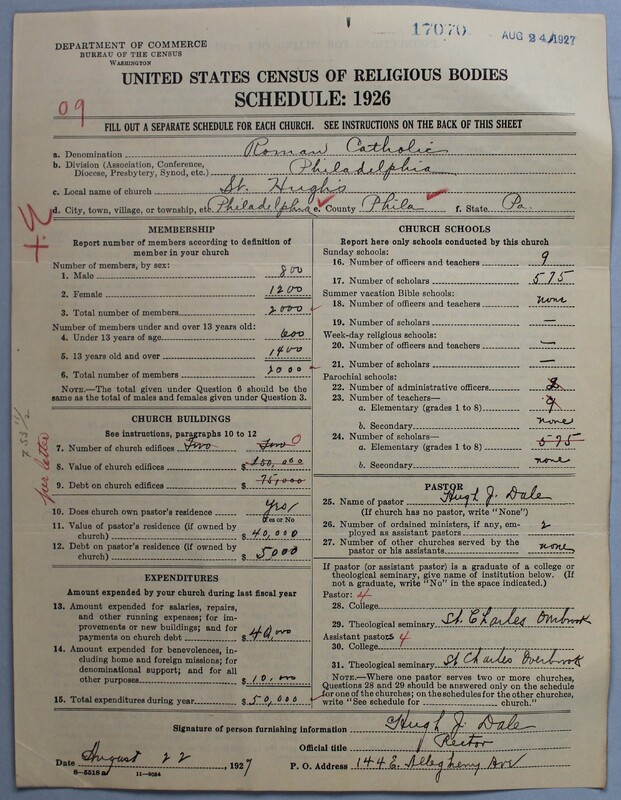 17070
AUG 24 1927
DEPARTMENT OF COMMERCE
BUREAU OF THE CENSUS
WASHINGTON
UNITED STATES CENSUS OF RELIGIOUS BODIES
SCHEDULE: 1926
09
FILL OUT A SEPARATE SCHEDULE FOR EACH CHURCH. SEE INSTRUCTIONS ON THE BACK OF THIS SHEET
a. Denomination Roman Catholic
b. Division (Association, Conference, Diocese, Presbytery, Synod, etc.) Philadelphia
c. Local name of church St. Hugh's
d. City, town, village, or township, etc. Philadelphia e. County Phila f. State Pa.
MEMBERSHIP
Report number of members according to definition of
member in your church
Number of members, by sex:
1. Male 800
2. Female 1200
3. Total number of members 2000
Number of members under and over 13 years old:
4. Under 13 years of age 600
5. 13 years old and over 1400
6. Total number of members 2000
NOTE.—The total given under Question 6 should be
the same as the total of males and females given under Question 3.
CHURCH BUILDINGS
See instructions, paragraphs 10 to 12
7. Number of church edifices Two Two 0
8. Value of church edifices $ 250,000
9. Debt on church edifices $ 75,000
per letter
10. Does church own pastor's residence? Yes
Yes or No
11. Value of pastor's residence (if owned by
church) $ 40,000
12. Debt on pastor's residence (if owned by
church) $ 5000
EXPENDITURES
Amount expended by your church during last fiscal year
13. Amount expended for salaries, repairs,
and other running expenses; for im-
provements or new buildings; and for
payments on church debt $ 40,000
14. Amount expended for benevolences, in-
cluding home and foreign missions; for
denominational support; and for all
other purposes $ 10,000
15. Total expenditures during year $ 50,000
CHURCH SCHOOLS
Report here only schools conducted by this church
Sunday schools:
16. Number of officers and teachers 9
17. Number of scholars 575
Summer vacation Bible schools:
18. Number of officers and teachers none
19. Number of scholars —
Week-day religious schools:
20. Number of officers and teachers —
21. Number of scholars —
Parochial schools:
22. Number of administrative officers
23. Number of teachers—
a. Elementary (grades 1 to 8) 9
b. Secondary none
24. Number of scholars—
a. Elementary (grades 1 to 8) 575
b. Secondary none
PASTOR
25. Name of pastor Hugh J. Dale
(If church has no pastor, write "None")
26. Number of ordained ministers, if any, em-
ployed as assistant pastors 2
27. Number of other churches served by the
pastor or his assistants none
If pastor (or assistant pastor) is a graduate of a college or
theological seminary, give name of institution below. (If
not a graduate, write "No" in the space indicated.)
Pastor: 4
28. College
29. Theological seminary St. Charles Overbrook
Assistant pastors 4
30. College
31. Theological seminary St Charles Overbrook
NOTE.—Where one pastor serves two or more churches,
Questions 28 and 29 should be answered only on the schedule
for one of the churches; on the schedules for the other churches,
write "See schedule for church."
Signature of person furnishing information Hugh J. Dale
Official title Rector
Date August 22, 1927 P. O. Address 144 E. Allegheny Ave
8—5518a 11—9084